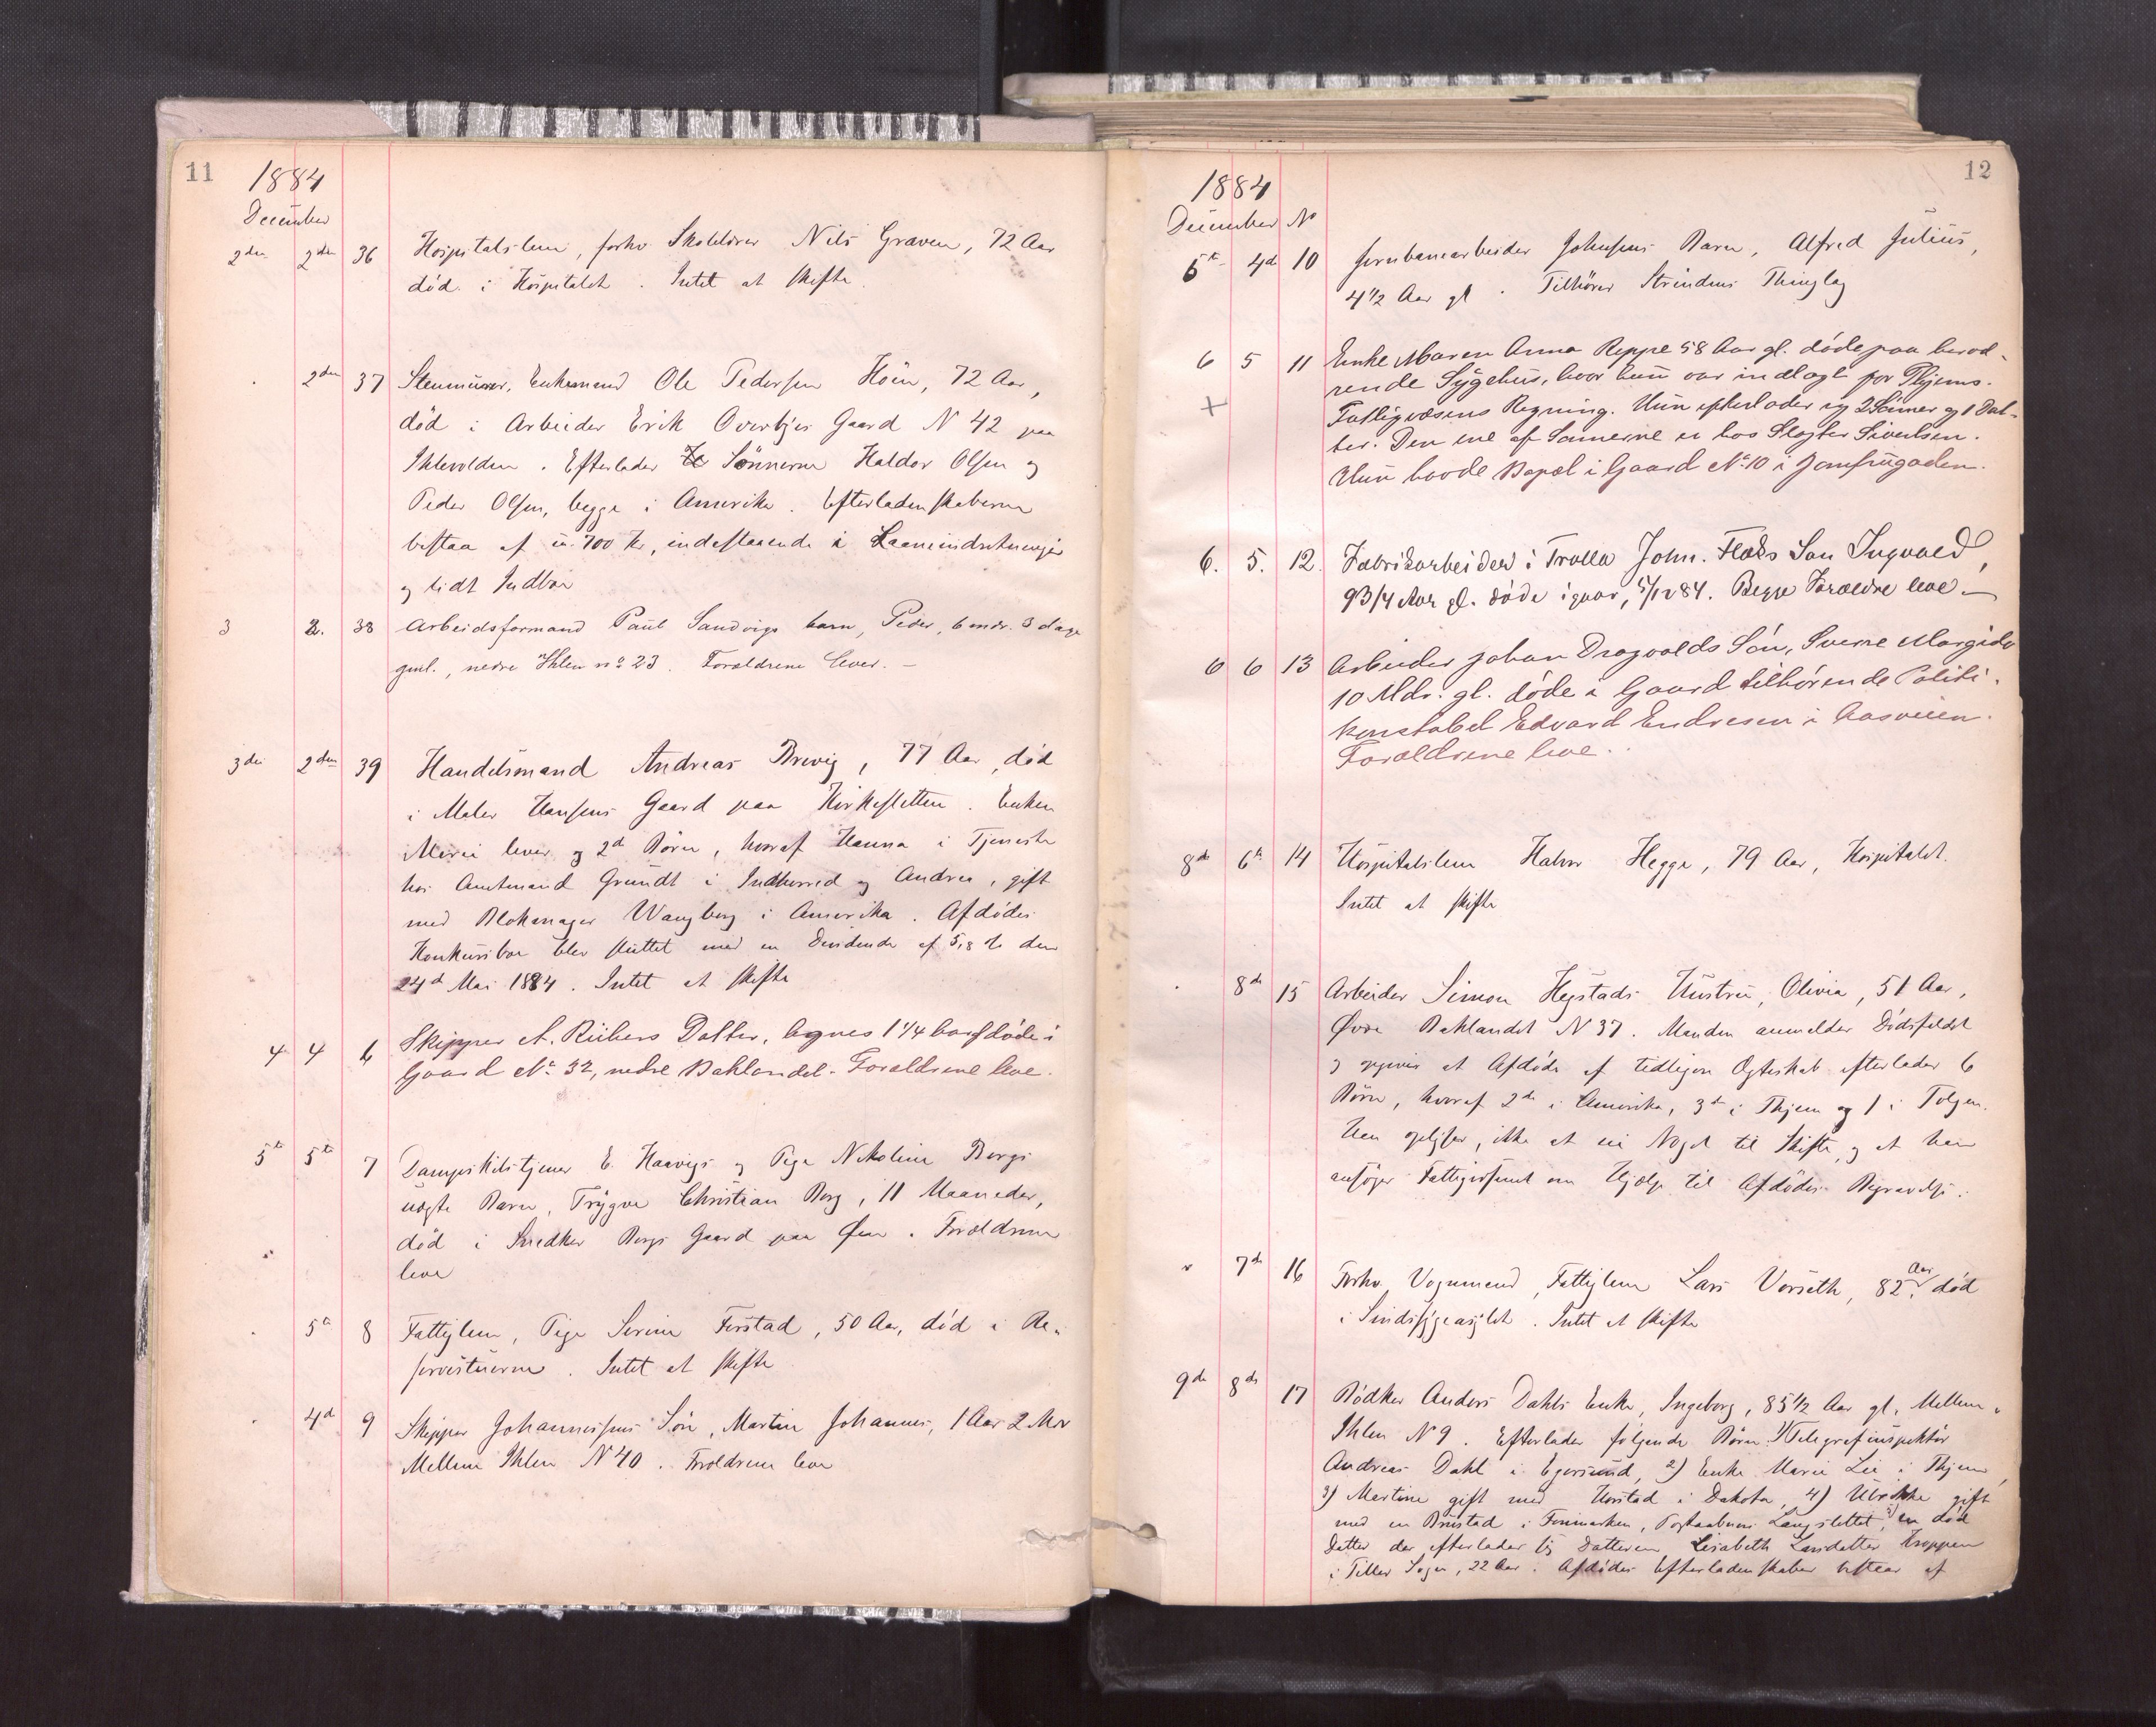 11
1884
December
2den 2den 36 Hospitalslem, forhv. Skolelærer Nils Græven, 72 Aar
død i Hospitalet. Intet at skifte.
2den 37 Stenmurer, Enkemand Ole Pedersen Höin, 72 Aar,
död i Arbeider Erik Overbjer Gaard N 42 paa
Ihlevolden. Efterlader Sönnerne Haldor Olsen og
Peder Olsen, begge i Amerika. Efterladenskaberne
bestaa af 700 Kr, indestaaende i Laaneindretninger
og lidt Indbo
3 2. 38 Arbeidsformand Paul Sandvigs barn, Peder, 6 mdr. 3 dage
gml., nedre Ihlen no 23. Forældrene lever. -
3die 2den 39 Handelsmand Andreas Brevig, 77 Aar, död
i Maler Hansens Gaard paa Kirkesletten. Enken
Merie lever og 2de Börn, hvoraf Hanna i Tjeneste
hos Amtmand Grundt i Indherred og Andrea, gift
med Blokmager Wangberg i Amerika. Afdödes
Konkursbo blev sluttet med en Dividende af 5,8 % den
24de Mai 1884. Intet at skifte
4 4 6 Skipper A. Riibers Datter, Agnes 1 1/4 Aar döde i
Gaard No 32, nedre Baklandet. Forældrene leve.
5te 5te 7 Dampskibstjener E. Haavigs og Pige Nikoline Bergs
uægte Barn, Trygve Christian Berg, 11 Maaneder,
död i Snedker Bergs Gaard paa Øen. Forældrene
leve
5te 8 Fattiglem, Pige Serine Ferstad, 50 Aar, död i Re-
servestuerne. Intet at skifte
4de 9 Skipper Johannessens Sön, Martin Johannes, 1 Aar 2 Mdr
Mellem Ihlen N 40. Forældrene leve
12
1884
December No
5te 4de 10 Jernbanearbeider Johnsens Barn, Alfred Julius,
4 1/2 Aar gl. Tilhörer Strindens Thinglag
6 5 11 Enke Maren Anna Reppe 58 Aar gl. döde paa herved-
rende Sygehus, hvor hun var indlagt for Thjems
+ Fattigvæsens Regning. Hun efterlader sig 2 Sönner og 1 Dat-
ter. Den ene af Sönnerne er hos Slagter Sivertsen.
Hun havde Bopæl i Gaard No 10 i Jomfrugaden.
6. 5. 12. Fabrikarbeider i Trolla John. Flaks Søn Ingvald,
9 3/4 Aar gl. døde igaar, 5/12 84. Begge Forældre leve. -
6 6 13 Arbeider Johan Dragvolds Sön, Sverre Margido
10 Mdr. gl. döde i Gaard tilhörende Politi-
konstabel Edvard Endresen i Aasveien.
Forældrene leve.
8de 6te 14 Hospitalslem Halvor Hegge, 79 Aar, Hospitalet.
Intet at skifte
8de 15 Arbeider Simon Hegstads Hustru, Olivia, 51 Aar,
Øvre Baklandet N 37. Manden anmelder Dödsfaldet
og opgiver at Afdöde af tidligere Ægteskab efterlader 6
Börn, hvoraf 2de i Amerika, 3de i Thjem og 1 i Tolgen.
Han oplyser, ikke at eie Noget til Skifte, og at han
ansöger Fattigvæsenet om Hjælp til Afdödes Begravelse.
7de 16 Forhv. Vognmand, Fattiglem Lars Vorseth, 82 Aar, död
i Sindssygeasylet. Intet at skifte
9de 8de 17 Bödker Anders Dahls Enke, Ingeborg, 85 1/2 Aar gl, Mellem
Ihlen N 9. Efterlader fölgende Börn 1) Telegrafinspektör
Andreas Dahl i Egersund, 2) Enke Marie Lie i Thjem,
3) Martine gift med Horstad i Dakota, 4) Ulrikke gift
med en Brustad i Finmarken, Postaabneri Langslettet, 5) en död
Datter der efterlader sig Datteren Lisabeth Larsdatter Kroppen
i Tiller Sogn, 22 Aar. Afdödes Efterladenskaber bestaar af